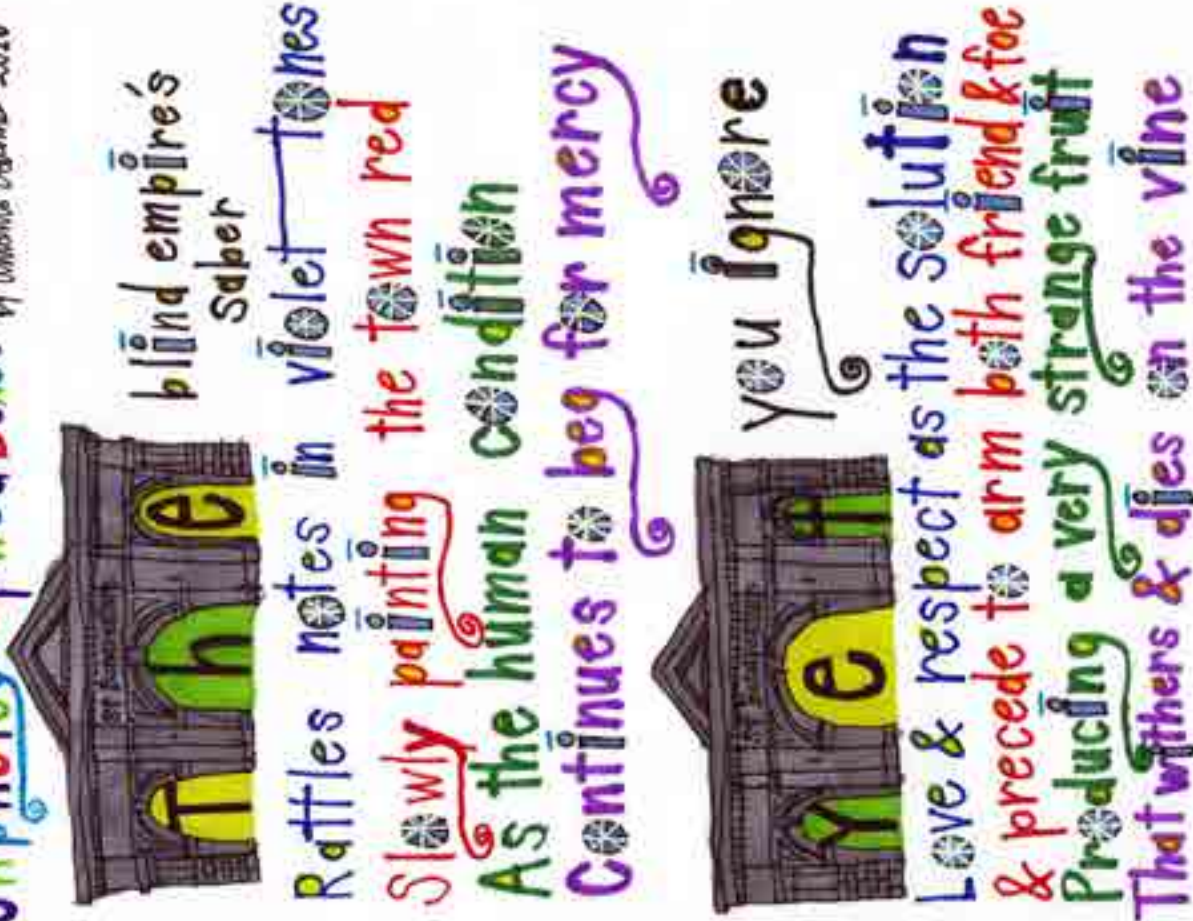 The blind empire's
saber
Rattles notes in violet tones
Slowly painting the town red
As the human condition
Continues to beg for mercy
Yet you ignore
Love & respect as the solution
& precede to arm both friend & foe
Producing a very strange fruit
That withers & dies on the vine